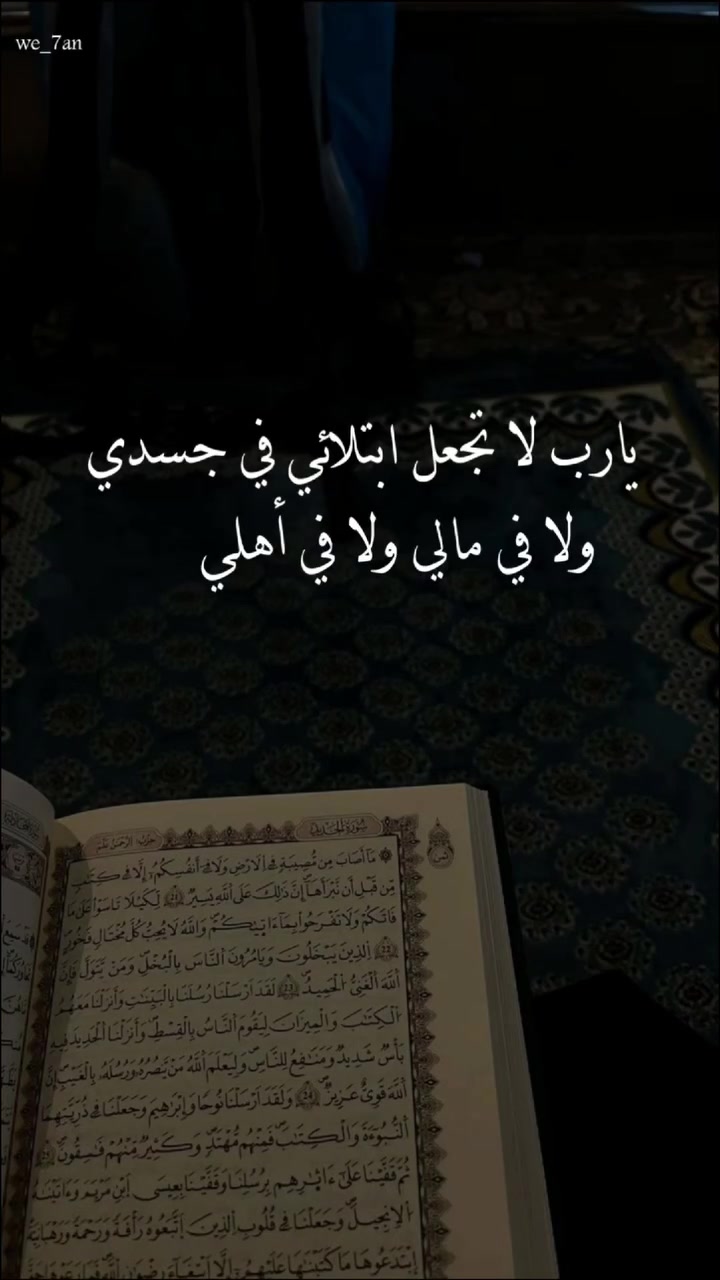 we_7an
يارب لا تجعل ابتلائي في جسدي
ولا في مالي ولا في أهلي
سورة الحديد
مَا أَصَابَ مِن مُّصِيبَةٍ فِي الْأَرْضِ وَلَا فِي أَنفُسِكُمْ إِلَّا فِي كِتَٰبٍ
مِّن قَبْلِ أَن نَّبْرَأَهَا إِنَّ ذَٰلِكَ عَلَى اللَّهِ يَسِيرٌ لِّكَيْلَا تَاسَوْا عَلَىٰ مَا
فَاتَكُمْ وَلَا تَفْرَحُوا بِمَا ءَاتَىٰكُمْ وَاللَّهُ لَا يُحِبُّ كُلَّ مُخْتَالٍ فَخُورٍ
الَّذِينَ يَبْخَلُونَ وَيَامُرُونَ النَّاسَ بِالْبُخْلِ وَمَنْ يَّتَوَلَّ فَإِنَّ
اللَّهَ الْغَنِيُّ الْحَمِيدُ لَقَدْ أَرْسَلْنَا رُسُلَنَا بِالْبَيِّنَٰتِ وَأَنزَلْنَا مَعَهُمُ
الْكِتَٰبَ وَالْمِيزَانَ لِيَقُومَ النَّاسُ بِالْقِسْطِ وَأَنزَلْنَا الْحَدِيدَ فِيهِ
بَأْسٌ شَدِيدٌ وَمَنَٰفِعُ لِلنَّاسِ وَلِيَعْلَمَ اللَّهُ مَنْ يَّنصُرُهُ وَرُسُلَهُ بِالْغَيْبِ إِنَّ
اللَّهَ قَوِيٌّ عَزِيزٌ وَلَقَدْ أَرْسَلْنَا نُوحًا وَإِبْرَٰهِيمَ وَجَعَلْنَا فِي ذُرِّيَّتِهِمَا
النُّبُوءَةَ وَالْكِتَٰبَ فَمِنْهُم مُّهْتَدٍ وَكَثِيرٌ مِّنْهُمْ فَٰسِقُونَ
ثُمَّ قَفَّيْنَا عَلَىٰ ءَاثَٰرِهِم بِرُسُلِنَا وَقَفَّيْنَا بِعِيسَى ابْنِ مَرْيَمَ وَءَاتَيْنَٰهُ
الْإِنجِيلَ وَجَعَلْنَا فِي قُلُوبِ الَّذِينَ اتَّبَعُوهُ رَأْفَةً وَرَحْمَةً وَرَهْبَانِيَّةً
ابْتَدَعُوهَا مَا كَتَبْنَٰهَا عَلَيْهِمْ إِلَّا ابْتِغَاءَ رِضْوَٰنِ اللَّهِ